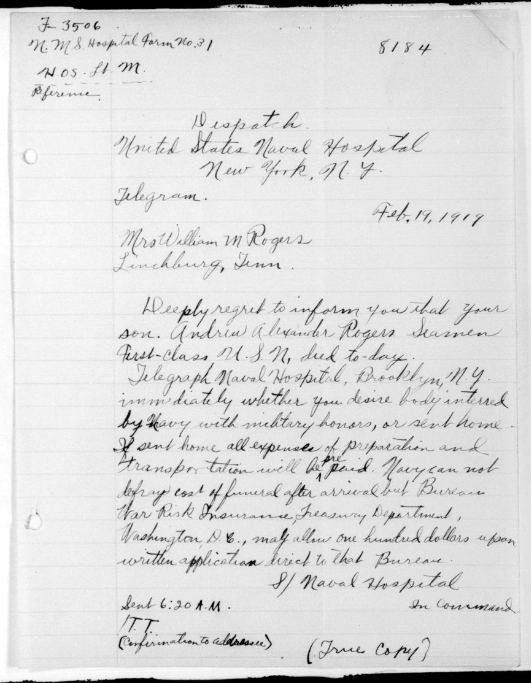 F 3506
N.M.S. Hospital Form No. 31
8184
HOS. St. M.
Despatch.
United States Naval Hospital
New York, N.Y.
Telegram.
Feb. 19, 1919
Mrs William M Rogers
Linchburg, Tenn.
Deeply regret to inform you that your
son. Andrew Alexander Rogers Seamen
First-class U.S.N, died to-day.
Telegraph Naval Hospital, Brooklyn, N.Y.
immediately whether you desire body interred
by Navy with military honors, or sent home.
If sent home all expenses of preparation and
Transportation will be pre paid. Navy can not
defray cost of funeral after arrival but Bureau
War Risk Insurance, Treasury Department,
Washington D.C., may allow one hundred dollars upon
written application direct to that Bureau.
S/ Naval Hospital
In Command
Sent 6:20 A.M.
/T.T.
(Confirmation to addressee)
(True Copy)